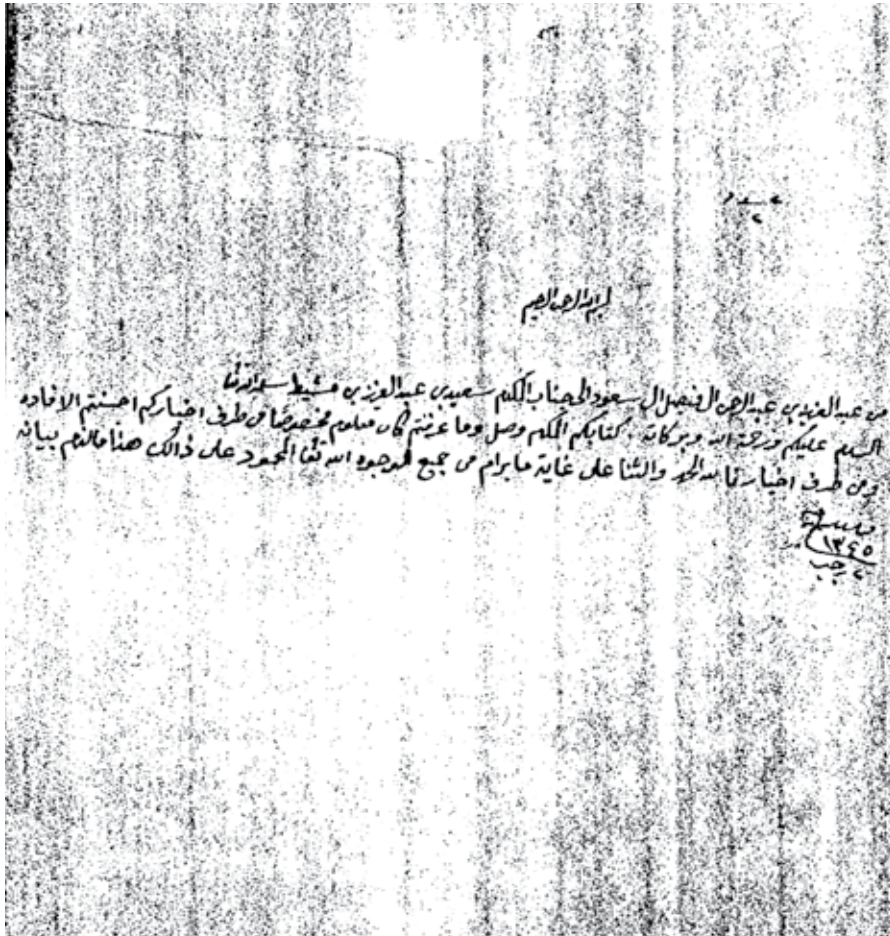 بسم الله الرحمن الرحيم
من عبد العزيز بن عبد الرحمن ال فيصل ال سعود الى جناب المكرم سعيد بن عبد العزيز بن مشيط سلمه الله تعا
السلام عليكم ورحمة الله وبركاته . كتابكم المكرم وصل وما عرفتم كان معلوم مخصوصًا من طرف اخباركم احسنتم الافاده
ومن طرف اخبارنا لله الحمد والثنا على غاية ما يرام من جميع الوجوه الله تعا المحمود على ذالك هذا مالزم بيانه
والسلام
١٣٤٥
٢ رجب